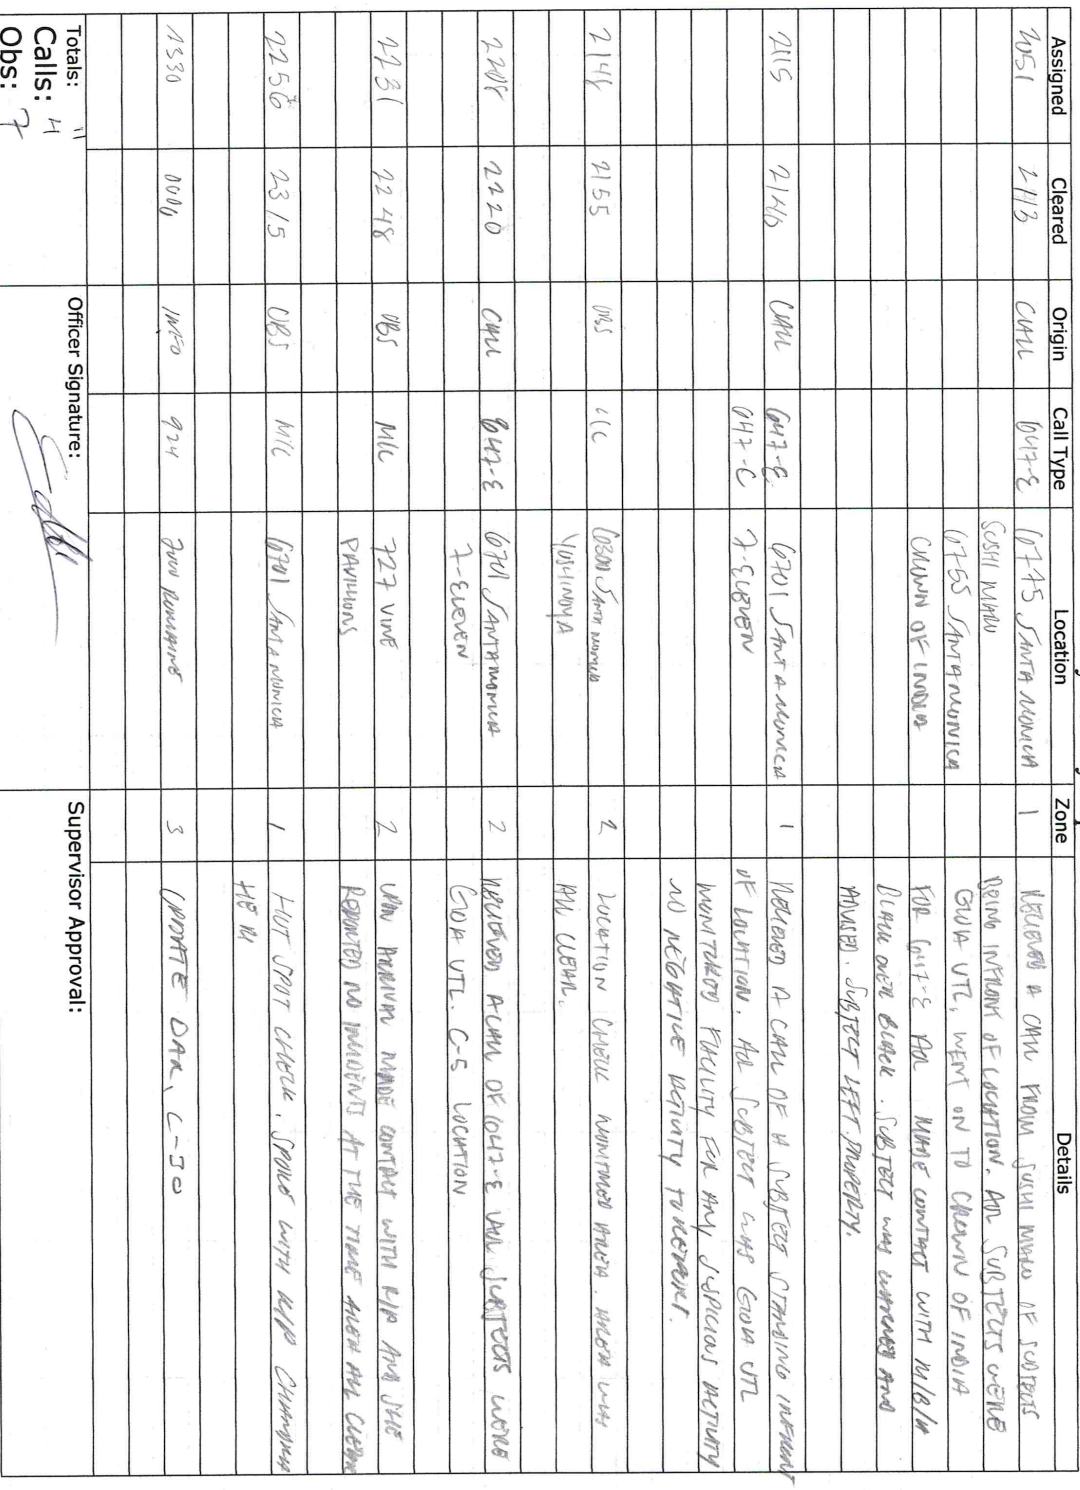 Assigned Cleared Origin Call Type Location Zone Details
2051 2113 CALL 647-E 6775 SANTA MONICA 1 RECIEVED A CALL FROM SUSHI MARU OF SUBJECTS
SUSHI MARU BEING INFRONT OF LOCATION. AOL SUBJECTS WERE
6755 SANTA MONICA GOA UTL, WENT ON TO CROWN OF INDIA
CROWN OF INDIA FOR 647-E AOL MADE CONTACT WITH M/B/H
BLACK OVER BLACK. SUBJECT WAS WARNED AND
ADVISED. SUBJECT LEFT PROPERTY.
2115 2140 CALL 647-E 6701 SANTA MONICA 1 RECIEVED A CALL OF A SUBJECT STANDING INFRONT
647-C 7-ELEVEN OF LOCATION. AOL SUBJECT WAS GOA UTL
MONITORED FACILITY FOR ANY SUSPICIOUS ACTIVITY
NO NEGATIVE ACTIVITY TO REPORT.
2148 2155 OBS 6300 SANTA MONICA 2 LOCATION CHECK MONITORED AREA. AREA WAS
YOSHINOYA ALL CLEAR.
2208 2220 CALL 647-E 6701 SANTA MONICA 2 RECIEVED A CALL OF 647-E AOL SUBJECTS WERE
7-ELEVEN GOA UTL. C-5 LOCATION
2231 2248 OBS M/C 727 VINE 2 UPON ARRIVAL MADE CONTACT WITH R/P AND SHE
PAVILIONS REPORTED NO INCIDENTS AT THE TIME AREA ALL CLEAR
2256 2315 OBS M/C 6701 SANTA MONICA 1 HOT SPOT CHECK. SPOKE WITH R/P
2330 0000 INFO 924 7000 ROMAINE 3 UPDATE DAR,
Totals:
Calls: 4
Obs: 7
Officer Signature:
Supervisor Approval: